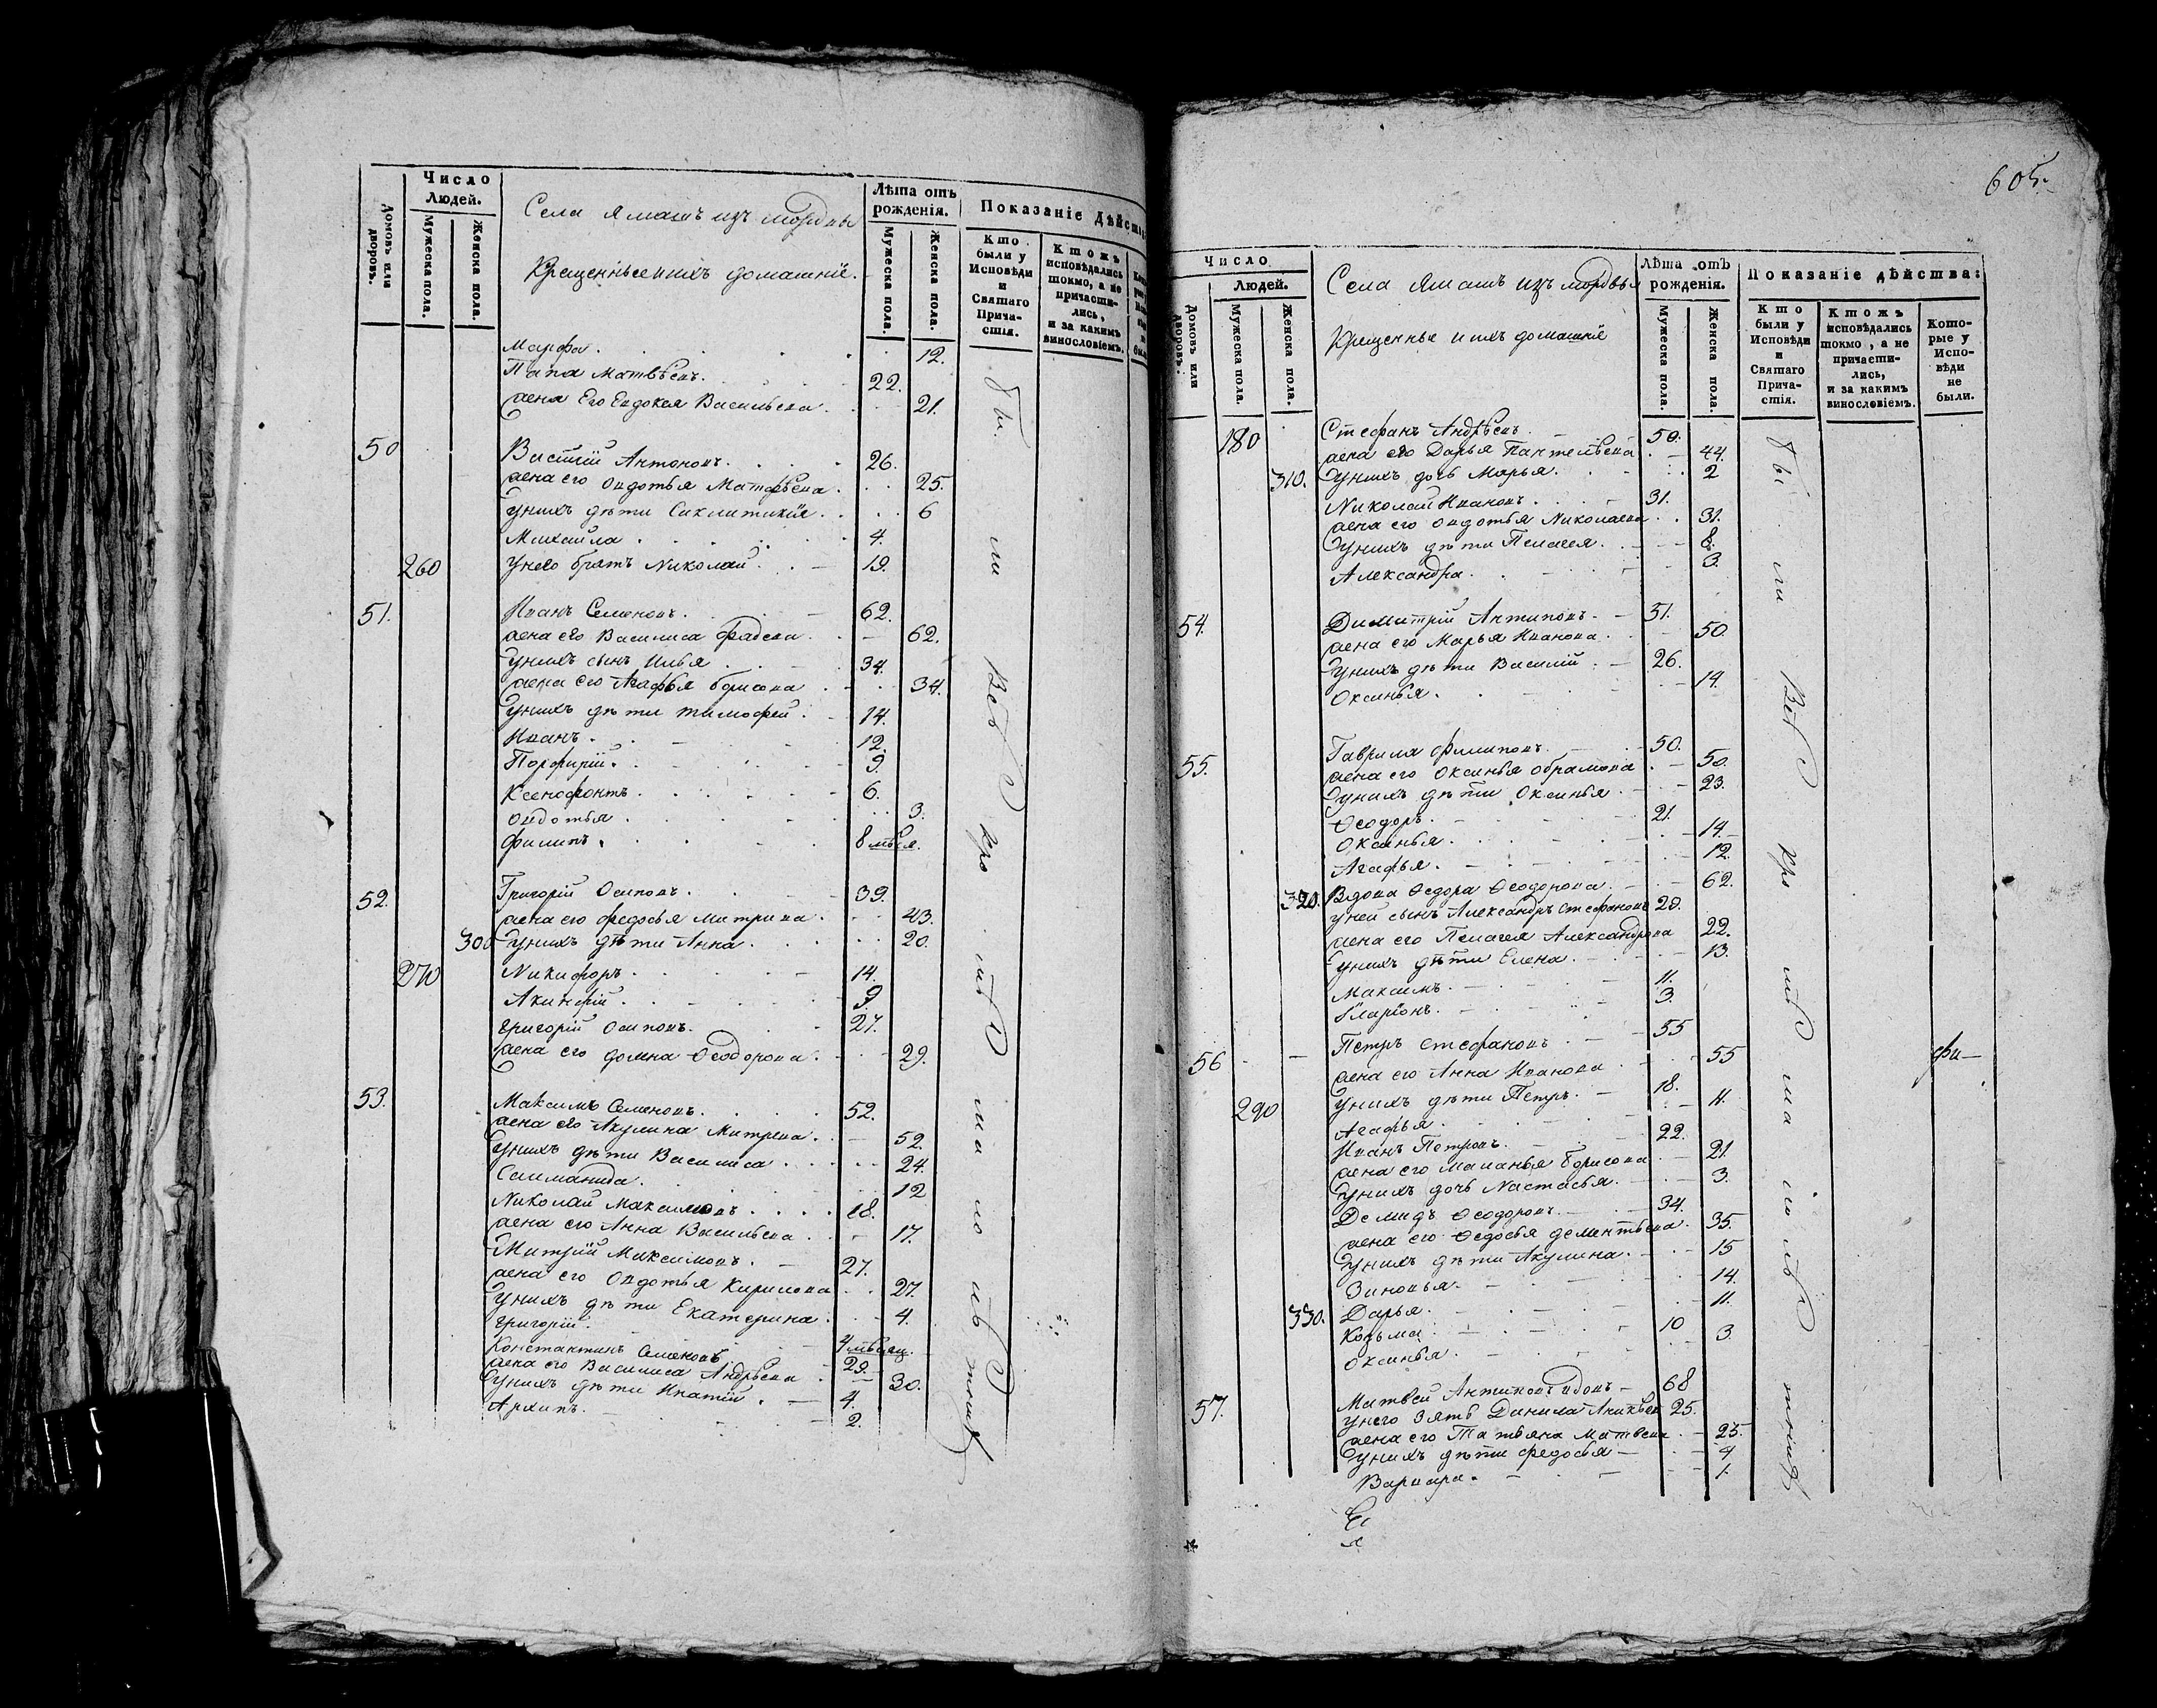 Число
Людей.
Домовъ или дворовъ.
Мужеска пола.
Женска пола.
Села Ямашъ изъ мордвы
Крещенные и ихъ домашніе.
Лѣта отъ
рожденія.
Мужеска пола.
Женска пола.
Показаніе дѣйств
Кто были у Исповѣди и Святаго Прича-стія.
Ктожъ исповѣдались токмо, а не причасти-лись, и за какимъ винословіемъ.
Марфа. 12.
Матвѣевъ. 22.
жена Его Евдокея Васильева. 21.
50 Василій Антоновъ. 26.
жена его Овдотья Матфѣева. 25.
у нихъ дѣти 6
Михайла 4.
260 у него братъ Николай. 19.
51. Иванъ Семеновъ. 62.
жена его Василиса 62.
у нихъ сынъ Илья 34.
жена его Агафья борисова 34.
у нихъ дѣти тимофей. 14.
Иванъ. 12.
Порфирій. 9.
Ксенофонтъ. 6.
Овдотья 3.
филипъ. 8 мѣся.
52. Григорій Осиповъ. 39.
жена его федосья митрева. 43.
300 у нихъ дѣти Анна. 20.
270 Никифоръ. 14.
Акинфій. 9.
григорій осиповъ. 27.
жена его домна Ѳеодорова. 29.
53. Максимъ Семеновъ. 52.
жена его Акулина Митрева. 52.
у нихъ дѣти Василиса. 24.
12
Николай Максимовъ. 18.
жена его Анна Васильева. 17.
Митрій Максимовъ. 27.
жена его Овдотья Кирилова 27.
у нихъ дѣти Екатерина. 4.
григорій. 4 мѣсяц.
Константинъ Семеновъ 29.
жена его Василиса Андрѣева 30.
у нихъ дѣти Ипатій. 4.
Архипъ. 2.
бы ли Всѣ кро мѣ ма ло лѣ тныхъ
605.
Число
Людей.
Домовъ или дворовъ.
Мужеска пола.
Женска пола.
Села Ямашъ изъ мордвы
Крещенные и ихъ домашніе
Лѣта отъ
рожденія.
Мужеска пола.
Женска пола.
Показаніе дѣйства:
Кто были у Исповѣди и Святаго Прича-стія.
Ктожъ исповѣдались токмо, а не причасти-лись, и за какимъ винословіемъ.
Кото-рые у Испо-вѣди не были.
180 Стефанъ Андрѣевъ. 50.
жена его Дарья Пантелѣева 44.
310. у нихъ дочь Марья. 2
Николай Ивановъ. 31.
жена его овдотья Николаева 31.
у нихъ дѣти Пелагея. 8.
Александра. 3.
54. Димитрій Антиповъ. 51.
жена его Марья Иванова. 50.
у нихъ дѣти Василій. 26.
Оксинья. 14.
55. Гаврила филиповъ. 50.
жена его Оксинья обрамова 50.
у нихъ дѣти Оксинья. 23.
Ѳеодоръ. 21.
Оксинья. 14.
Агафья. 12.
320. Вдова Ѳедора Ѳеодорова. 62.
у ней сынъ Александръ Стефановъ 29.
жена его Пелагея Александрова 22.
у нихъ дѣти Елена. 13.
Максимъ. 11.
Иларіонъ. 3.
56 Петръ Стефановъ. 55
жена его Анна Иванова. 55
290 у нихъ дѣти Петръ. 18.
Агафья. 11.
Иванъ Петровъ. 22.
жена его Маланья борисова 21.
у нихъ дочь Настасья. 3.
Демидъ Ѳеодоровъ. 34.
жена его Ѳедосья дементьева. 35.
у нихъ дѣти Акулина. 15
Зиновья. 14.
330. Дарья. 11.
Козьма. 10
Оксинья. 3.
57. Матвѣй Антиповъ вдовъ 68
у него Зять Данила 25.
жена его Татьяна Матвеева 25.
у нихъ дѣти федосья 4
Варвара. 1.
бы ли Всѣ кро мѣ ма ло лѣ тныхъ